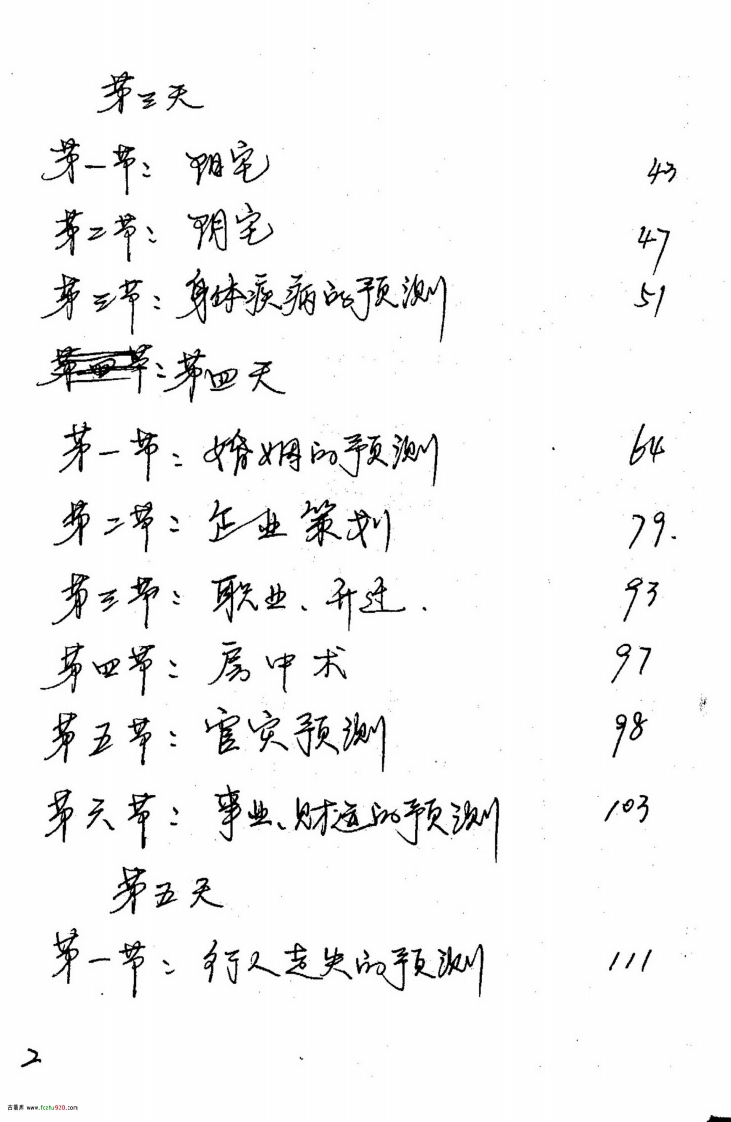 第三天
第一节：阳宅 43
第二节：阴宅 47
第三节：身体疾病的预测 51
第四节：第四天
第一节：婚姻的预测 64
第二节：企业策划 79.
第三节：职业、升迁. 93
第四节：房中术 97
第五节：官灾预测 98
第六节：事业、财运的预测 103
第五天
第一节：行人走失的预测 111
2
www.fczhu920.com